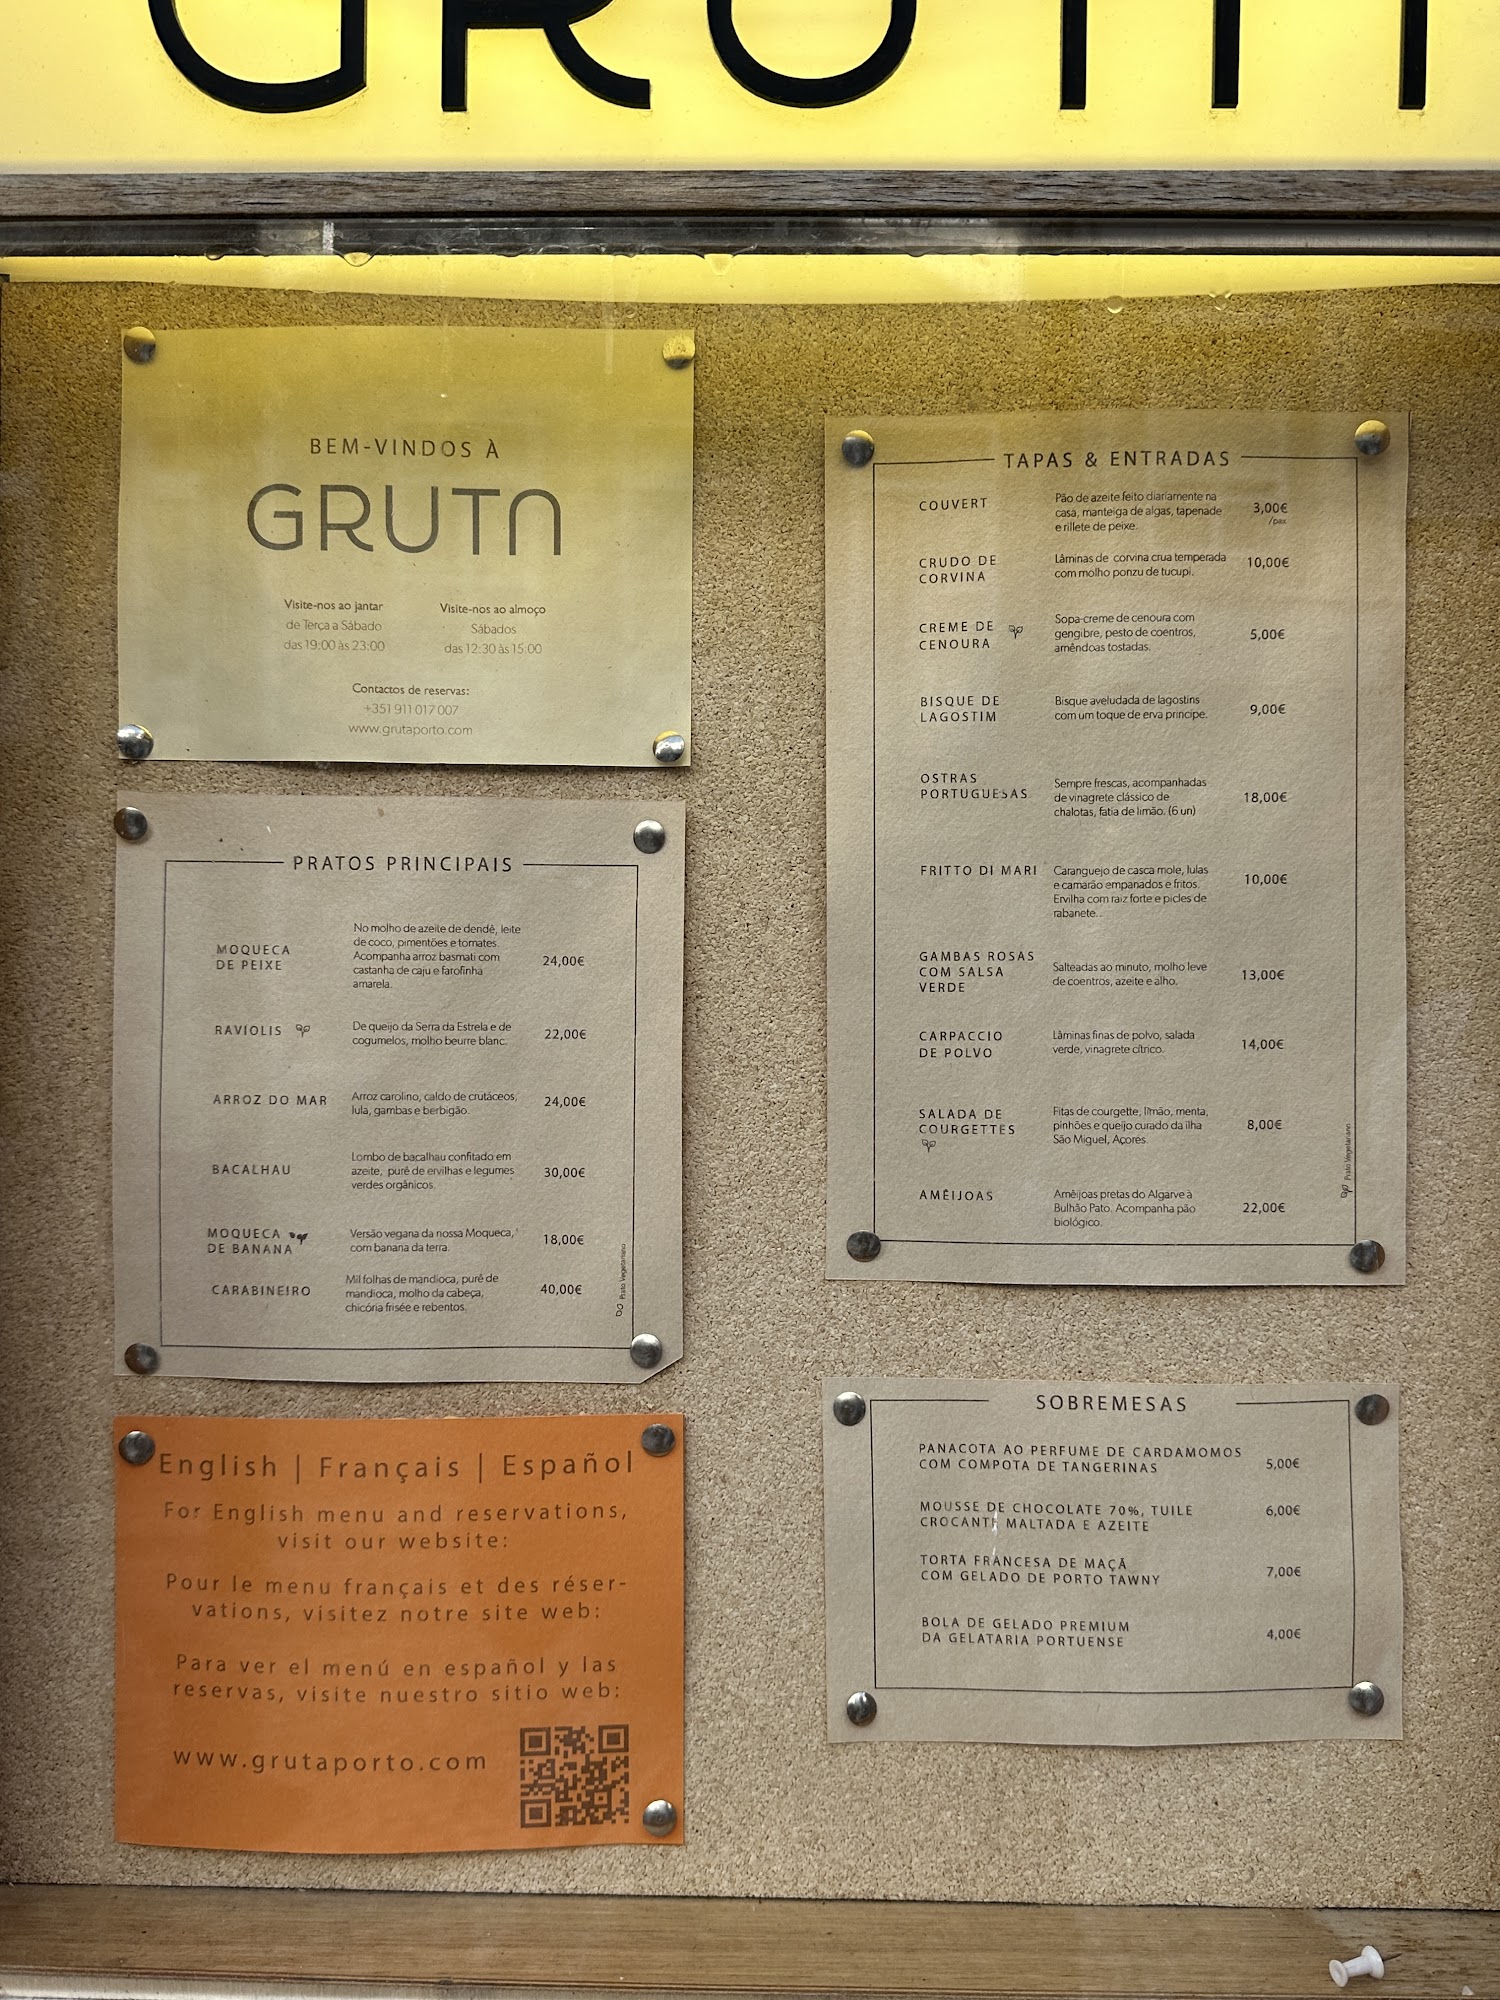 GRUTA
BEM-VINDOS À
GRUTA
Visite-nos ao jantar
de Terça a Sábado
das 19:00 às 23:00
Visite-nos ao almoço
Sábados
das 12:30 às 15:00
Contactos de reservas:
+351 911 017 007
www.grutaporto.com
PRATOS PRINCIPAIS
MOQUECA
DE PEIXE
No molho de azeite de dendê, leite
de coco, pimentões e tomates.
Acompanha arroz basmati com
castanha de caju e farofinha
amarela.
24,00€
RAVIOLIS
De queijo da Serra da Estrela e de
cogumelos, molho beurre blanc.
22,00€
ARROZ DO MAR
Arroz carolino, caldo de crutáceos,
lula, gambas e berbigão.
24,00€
BACALHAU
Lombo de bacalhau confitado em
azeite, purê de ervilhas e legumes
verdes orgânicos.
30,00€
MOQUECA
DE BANANA
Versão vegana da nossa Moqueca,
com banana da terra.
18,00€
CARABINEIRO
Mil folhas de mandioca, purê de
mandioca, molho da cabeça,
chicória frisée e rebentos.
40,00€
Prato Vegetariano
English | Français | Español
For English menu and reservations,
visit our website:
Pour le menu français et des réser-
vations, visitez notre site web:
Para ver el menú en español y las
reservas, visite nuestro sitio web:
www.grutaporto.com
TAPAS & ENTRADAS
COUVERT
Pão de azeite feito diariamente na
casa, manteiga de algas, tapenade
e rillete de peixe.
3,00€
/pax
CRUDO DE
CORVINA
Lâminas de corvina crua temperada
com molho ponzu de tucupi.
10,00€
CREME DE
CENOURA
Sopa-creme de cenoura com
gengibre, pesto de coentros,
amêndoas tostadas.
5,00€
BISQUE DE
LAGOSTIM
Bisque aveludada de lagostins
com um toque de erva principe.
9,00€
OSTRAS
PORTUGUESAS
Sempre frescas, acompanhadas
de vinagrete clássico de
chalotas, fatia de limão. (6 un)
18,00€
FRITTO DI MARI
Caranguejo de casca mole, lulas
e camarão empanados e fritos.
Ervilha com raiz forte e picles de
rabanete..
10,00€
GAMBAS ROSAS
COM SALSA
VERDE
Salteadas ao minuto, molho leve
de coentros, azeite e alho.
13,00€
CARPACCIO
DE POLVO
Lâminas finas de polvo, salada
verde, vinagrete cítrico.
14,00€
SALADA DE
COURGETTES
Fitas de courgette, limão, menta,
pinhões e queijo curado da ilha
São Miguel, Açores.
8,00€
AMÊIJOAS
Amêijoas pretas do Algarve à
Bulhão Pato. Acompanha pão
biológico.
22,00€
Prato Vegetariano
SOBREMESAS
PANACOTA AO PERFUME DE CARDAMOMOS
COM COMPOTA DE TANGERINAS
5,00€
MOUSSE DE CHOCOLATE 70%, TUILE
CROCANTE MALTADA E AZEITE
6,00€
TORTA FRANCESA DE MAÇÃ
COM GELADO DE PORTO TAWNY
7,00€
BOLA DE GELADO PREMIUM
DA GELATARIA PORTUENSE
4,00€